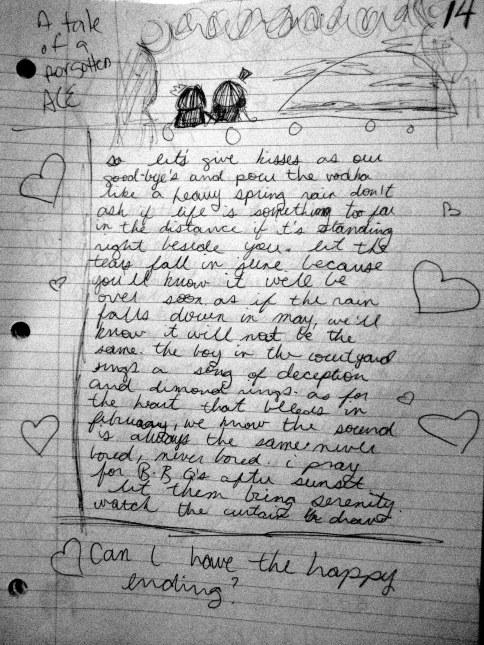 14
A tale
of a
forgotten
ACE
so let's give kisses as our
good-bye's and pour the vodka
like a heavy spring rain don't
ask if life is something too far
in the distance if it's standing
right beside you. let the
tears fall in june because
you'll know it we'll be
over soon as if the rain
falls down in may, we'll
know it will not be the
same. the boy in the courtyard
sings a song of deception
and dimond rings. as for
the heart that bleeds in
february, we know the sound
is always the same never
bored, never bored. i pray
for B.B.Q's after sunset
let them bring serenity.
watch the curtain be drawn
Can I have the happy
ending?